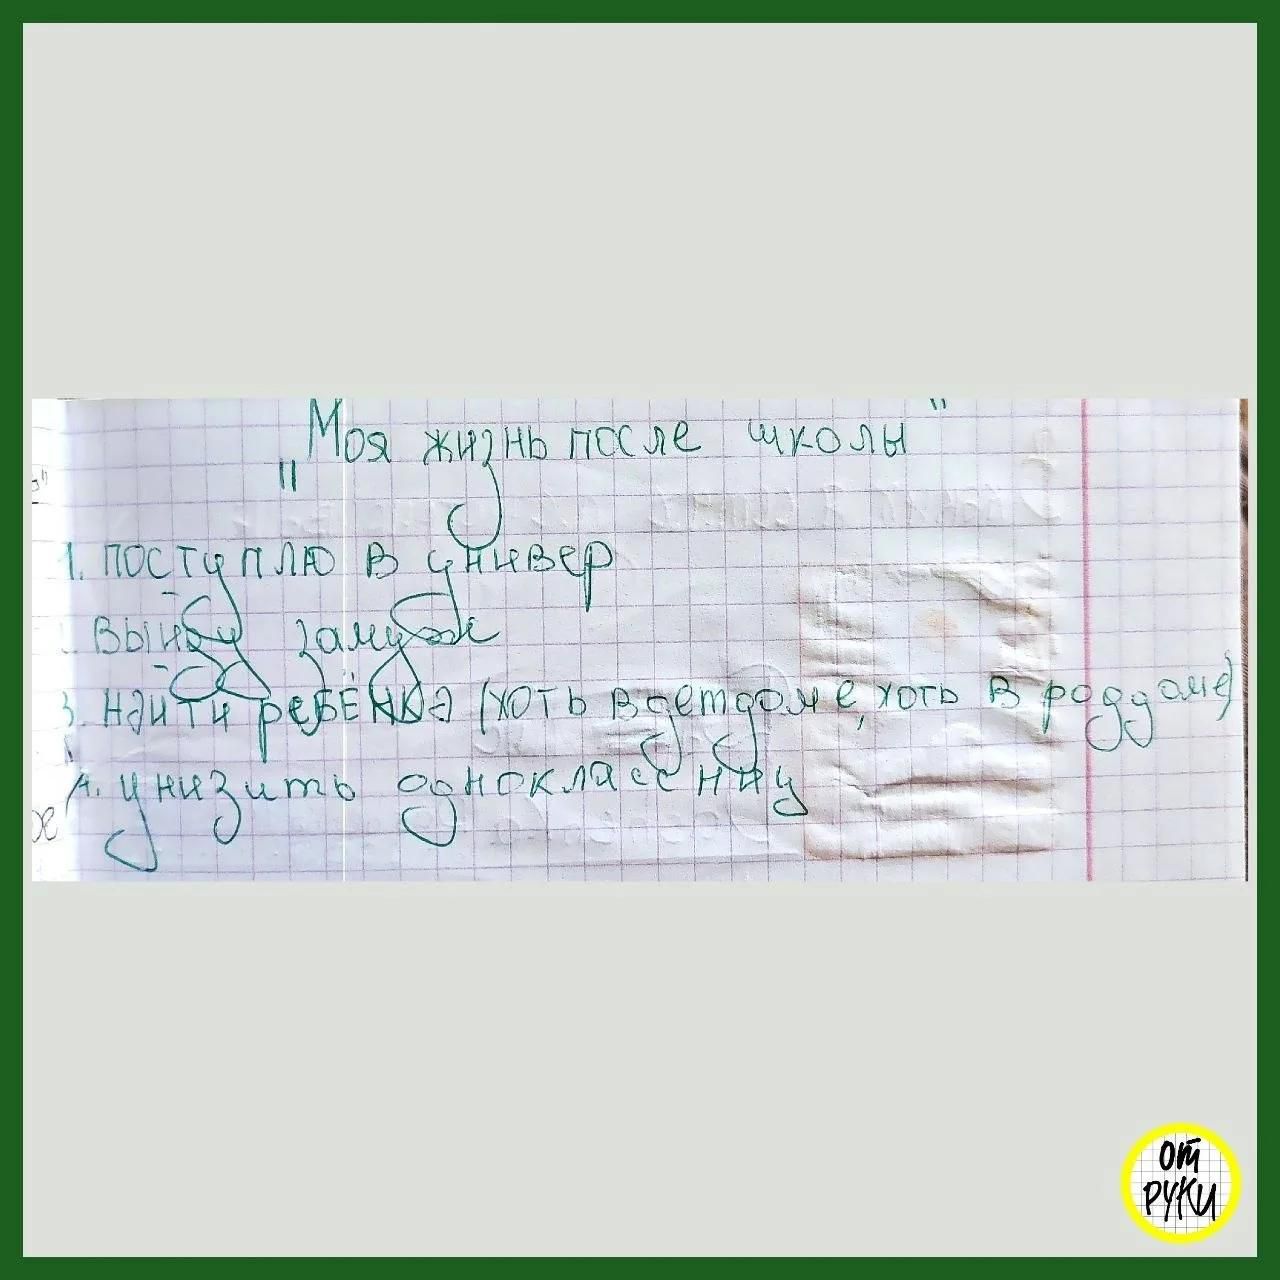 "Моя жизнь после школы"
1. поступлю в универ
выйду замуж
3. найти ребёнка (хоть в детдоме, хоть в роддоме)
4. унизить одноклассницу
от
руки